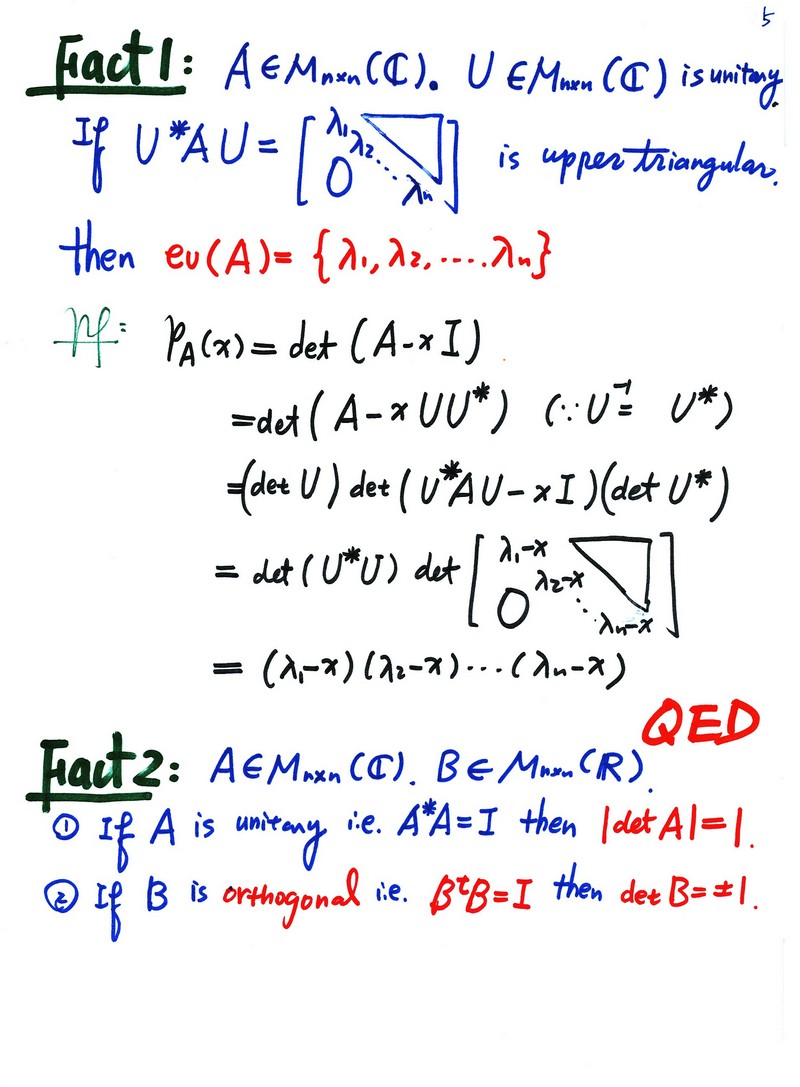 5
Fact 1: A∈Mₙₓₙ(ℂ). U∈Mₙₓₙ(ℂ) is unitary.
If U*AU = [λ₁ λ₂ ⋱ λₙ 0] is upper triangular.
then ev(A) = {λ₁, λ₂, .... λₙ}
pf: P_A(x) = det (A-xI)
= det (A-xUU*) (∵ U⁻¹ = U*)
= (det U) det (U*AU-xI)(det U*)
= det (U*U) det [λ₁-x λ₂-x ⋱ λₙ-x 0]
= (λ₁-x)(λ₂-x)...(λₙ-x)
QED
Fact 2: A∈Mₙₓₙ(ℂ). B∈Mₙₓₙ(ℝ).
① If A is unitary i.e. A*A=I then |det A|=1.
② If B is orthogonal i.e. BᵗB=I then det B=±1.